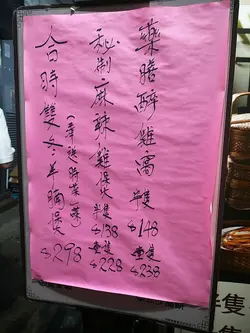 藥膳醉雞窩 半隻$148
壹隻$238
秘制麻辣雞煲 半隻$138
壹隻$228
合時雙冬羊腩煲 $298
(奉送時菜一碟)
半隻